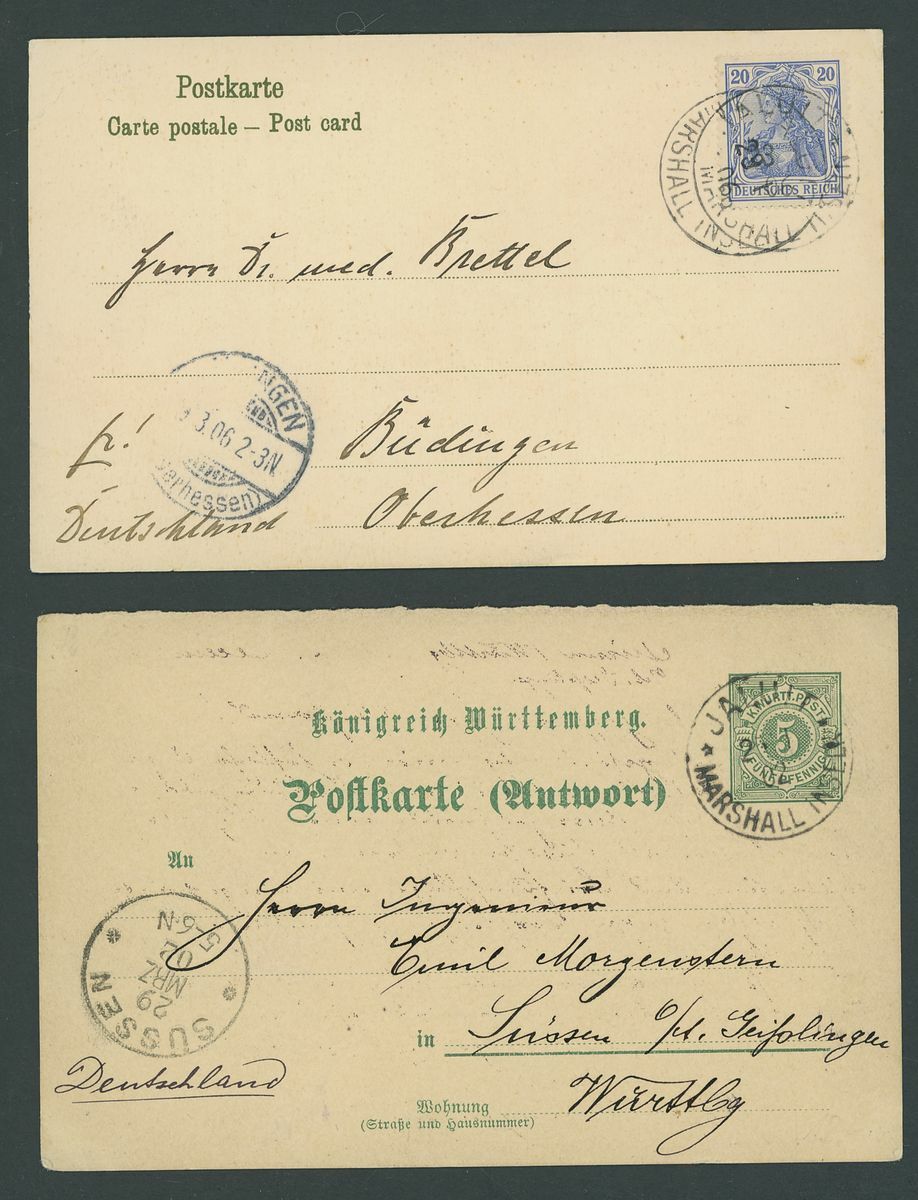 Postkarte
Carte postale — Post card
20 20
DEUTSCHES REICH
MARSHALL INSELN
MARSHALL INSELN
Herrn Dr. med. Brettel
NGEN
3.06 2-3N
erhessen)
fr!
Büdingen
Deutschland
Oberhessen
Königreich Württemberg.
Postkarte (Antwort)
K.WÜRTT.POST
5
FÜNF PFENNIG
JALUIT
MARSHALL INSELN
An
Herrn Ingenieur
Emil Morgenstern
in Süssen O/A. Geißlingen
Württbg
SÜSSEN
29
MRZ
02
5-6·N
Deutschland
Wohnung
(Straße und Hausnummer)